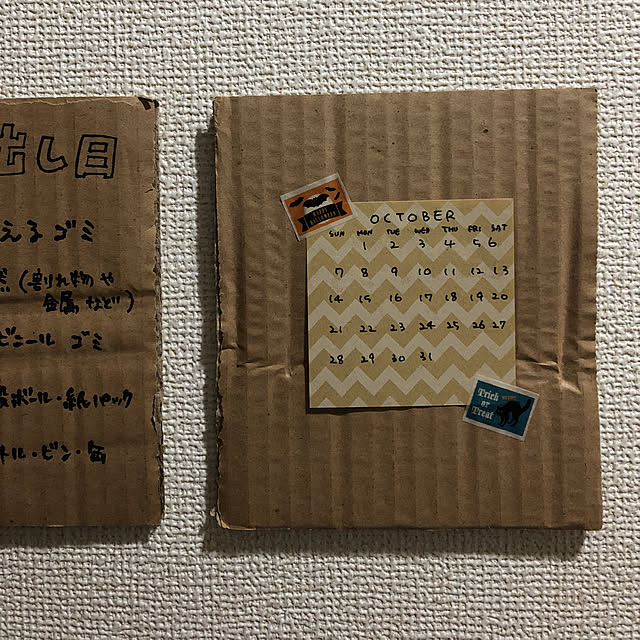 出し日
えるゴミ
(割れ物や
金属など)
ビニール ゴミ
ボール・紙パック
トル・ビン・缶
HAPPY
HALLOWEEN
OCTOBER
SUN MON TUE WED THU FRI SAT
1 2 3 4 5 6
7 8 9 10 11 12 13
14 15 16 17 18 19 20
21 22 23 24 25 26 27
28 29 30 31
Trick
or
Treat